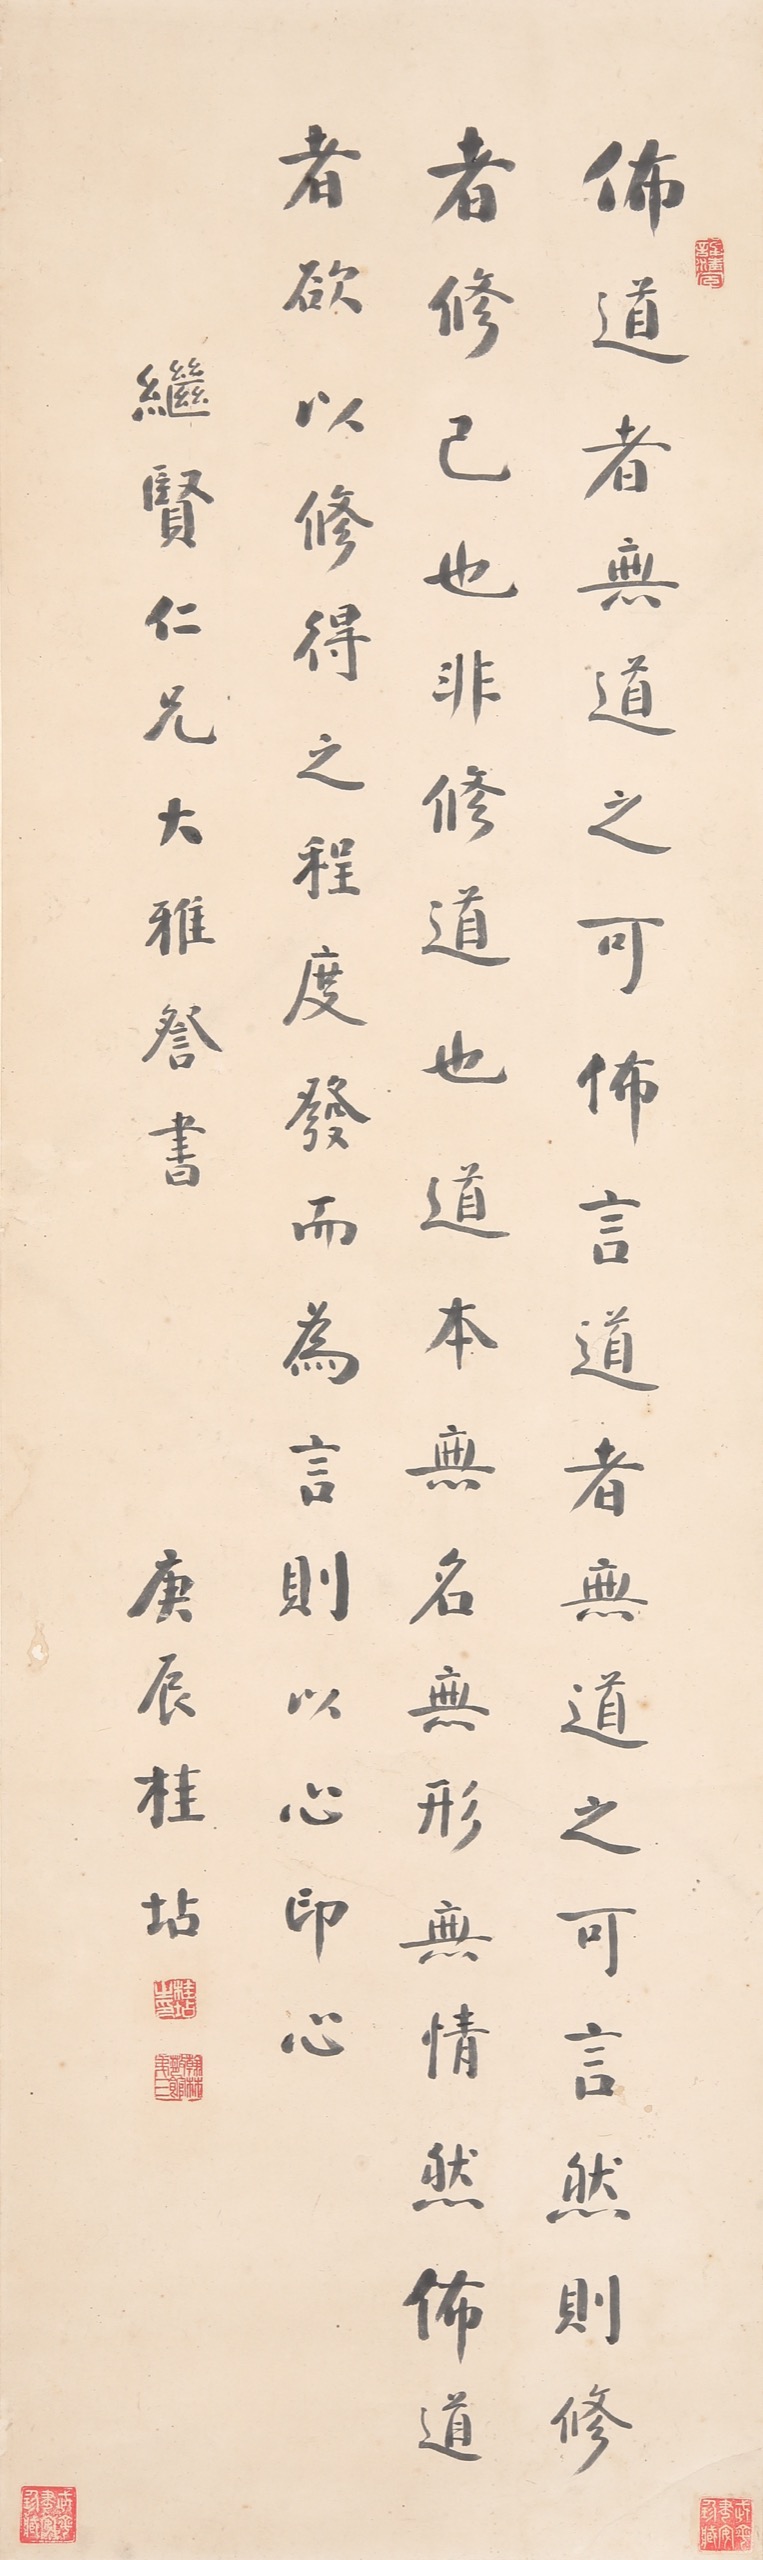 佈道者無道之可佈言道者無道之可言然則修
者修己也非修道也道本無名無形無情然佈道
者欲以修得之程度發而為言則以心印心
繼賢仁兄大雅詧書
庚辰桂坫
桂坫之印